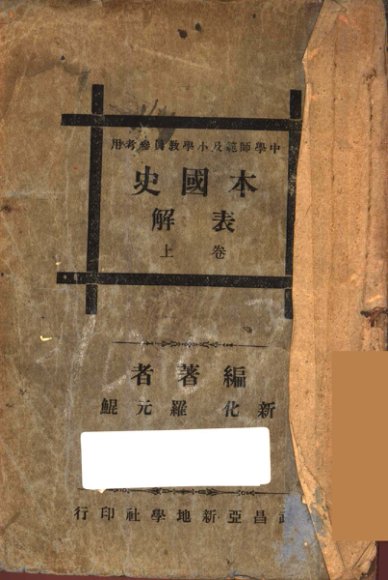 中學師範及小學教員參考用
本國史
表解
卷上
編著者
新化 羅元鯤
武昌亞新地學社印行